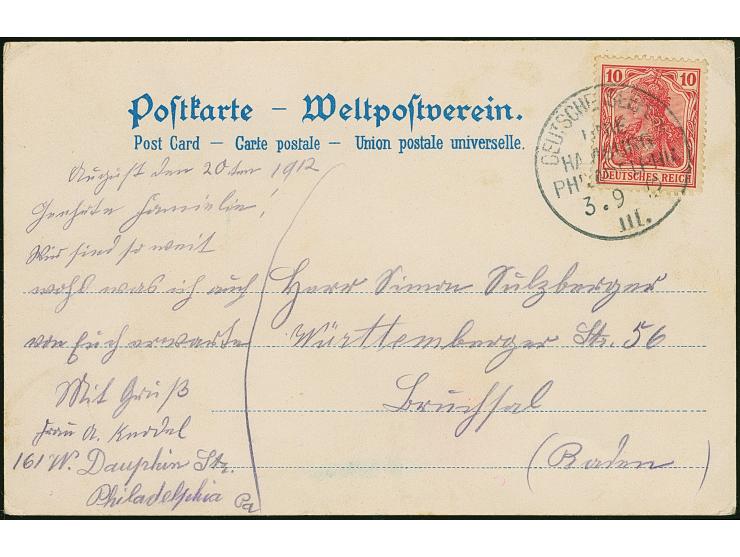 Postkarte – Weltpostverein.
Post Card — Carte postale — Union postale universelle.
10 10
DEUTSCHES REICH
DEUTSCHE SEEPOST
LINIE
HAMBURG
PHILADELPHIA
3.9 12
III.
August den 20ten 1912
Geehrte Familie!
Wir sind so weit
wohl was ich auch
von Euch erwarte
Mit Gruß
Frau A. Knodel
161 W. Dauphin Str.
Philadelphia Pa
Herr Simon Sulzberger
Württemberger Str. 56
Bruchsal
(Baden)